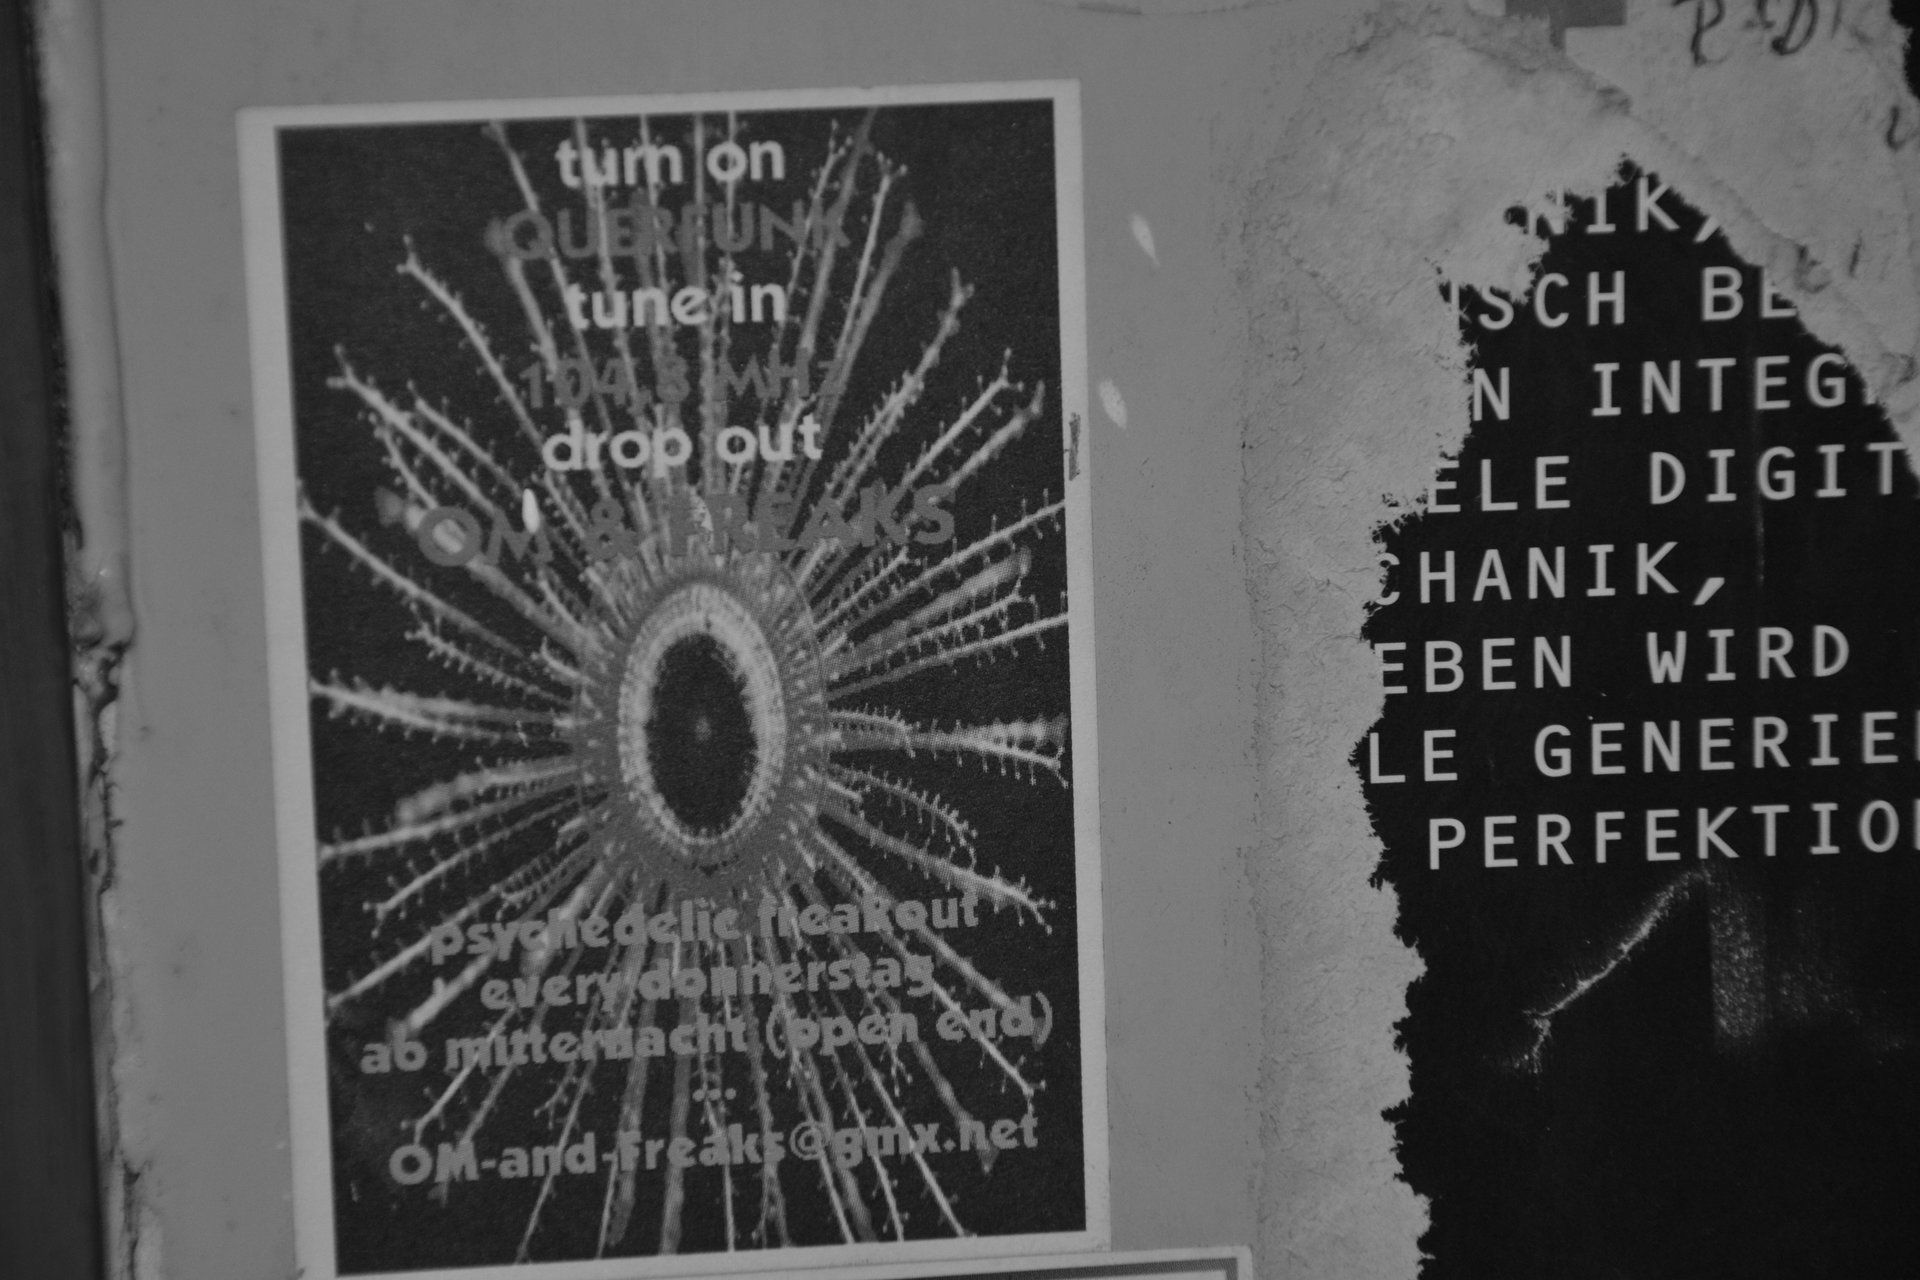 turn on
QUERFUNK
tune in
104,8 MHz
drop out
OM & FREAKS
psychedelic freakout
every donnerstag
ab mitternacht (open end)
...
OM-and-freaks@gmx.net
NIK,
ISCH BE
N INTEG
ELE DIGIT
CHANIK,
EBEN WIRD
LE GENERIE
PERFEKTIO